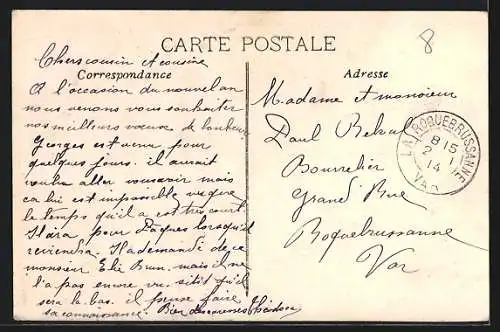 CARTE POSTALE
8
Correspondance
Adresse
Chers cousin et cousine
A l'occasion du nouvel an
nous venons vous souhaiter
nos meilleurs vœux de bonheur
Georges est venu pour
quelques jours. il aurait
voulu aller vous voir mais
ca lui est impossible vu que
le temps qu'il a est très court.
Il ira pour Pâques lorsqu'il
reviendra. Il a demandé de ce
monsieur Elie Brun, mais il ne
l'a pas encore vu sitôt qu'il
sera la bas. il pense faire
sa connaissance. Bien des
Madame et monsieur
Paul
Bourrelier
Grand' Rue
Roquebrussanne
Var
LA ROQUEBRUSSANNE
8 15
2 1
14
VAR